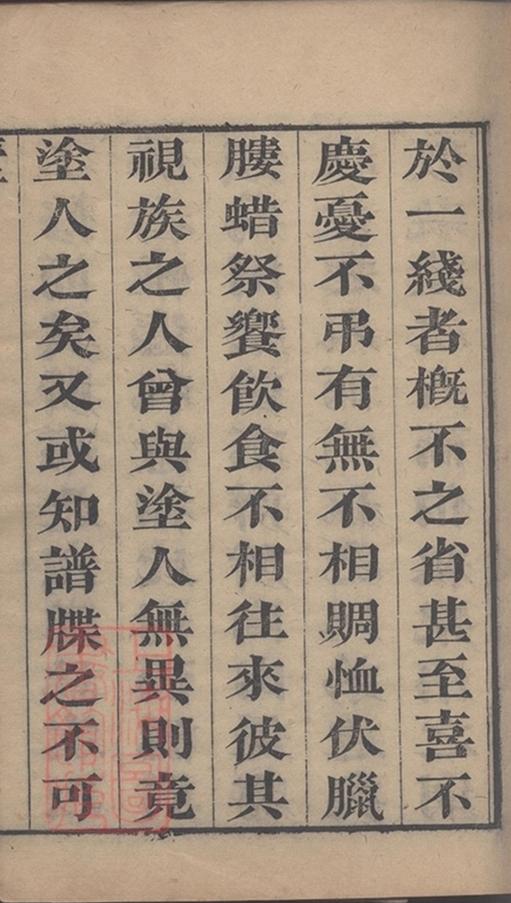 於一綫者槪不之省甚至喜不
慶憂不弔有無不相賙恤伏臘
膢蜡祭饗飲食不相往來彼其
視族之人曾與塗人無異則竟
塗人之矣又或知譜牒之不可